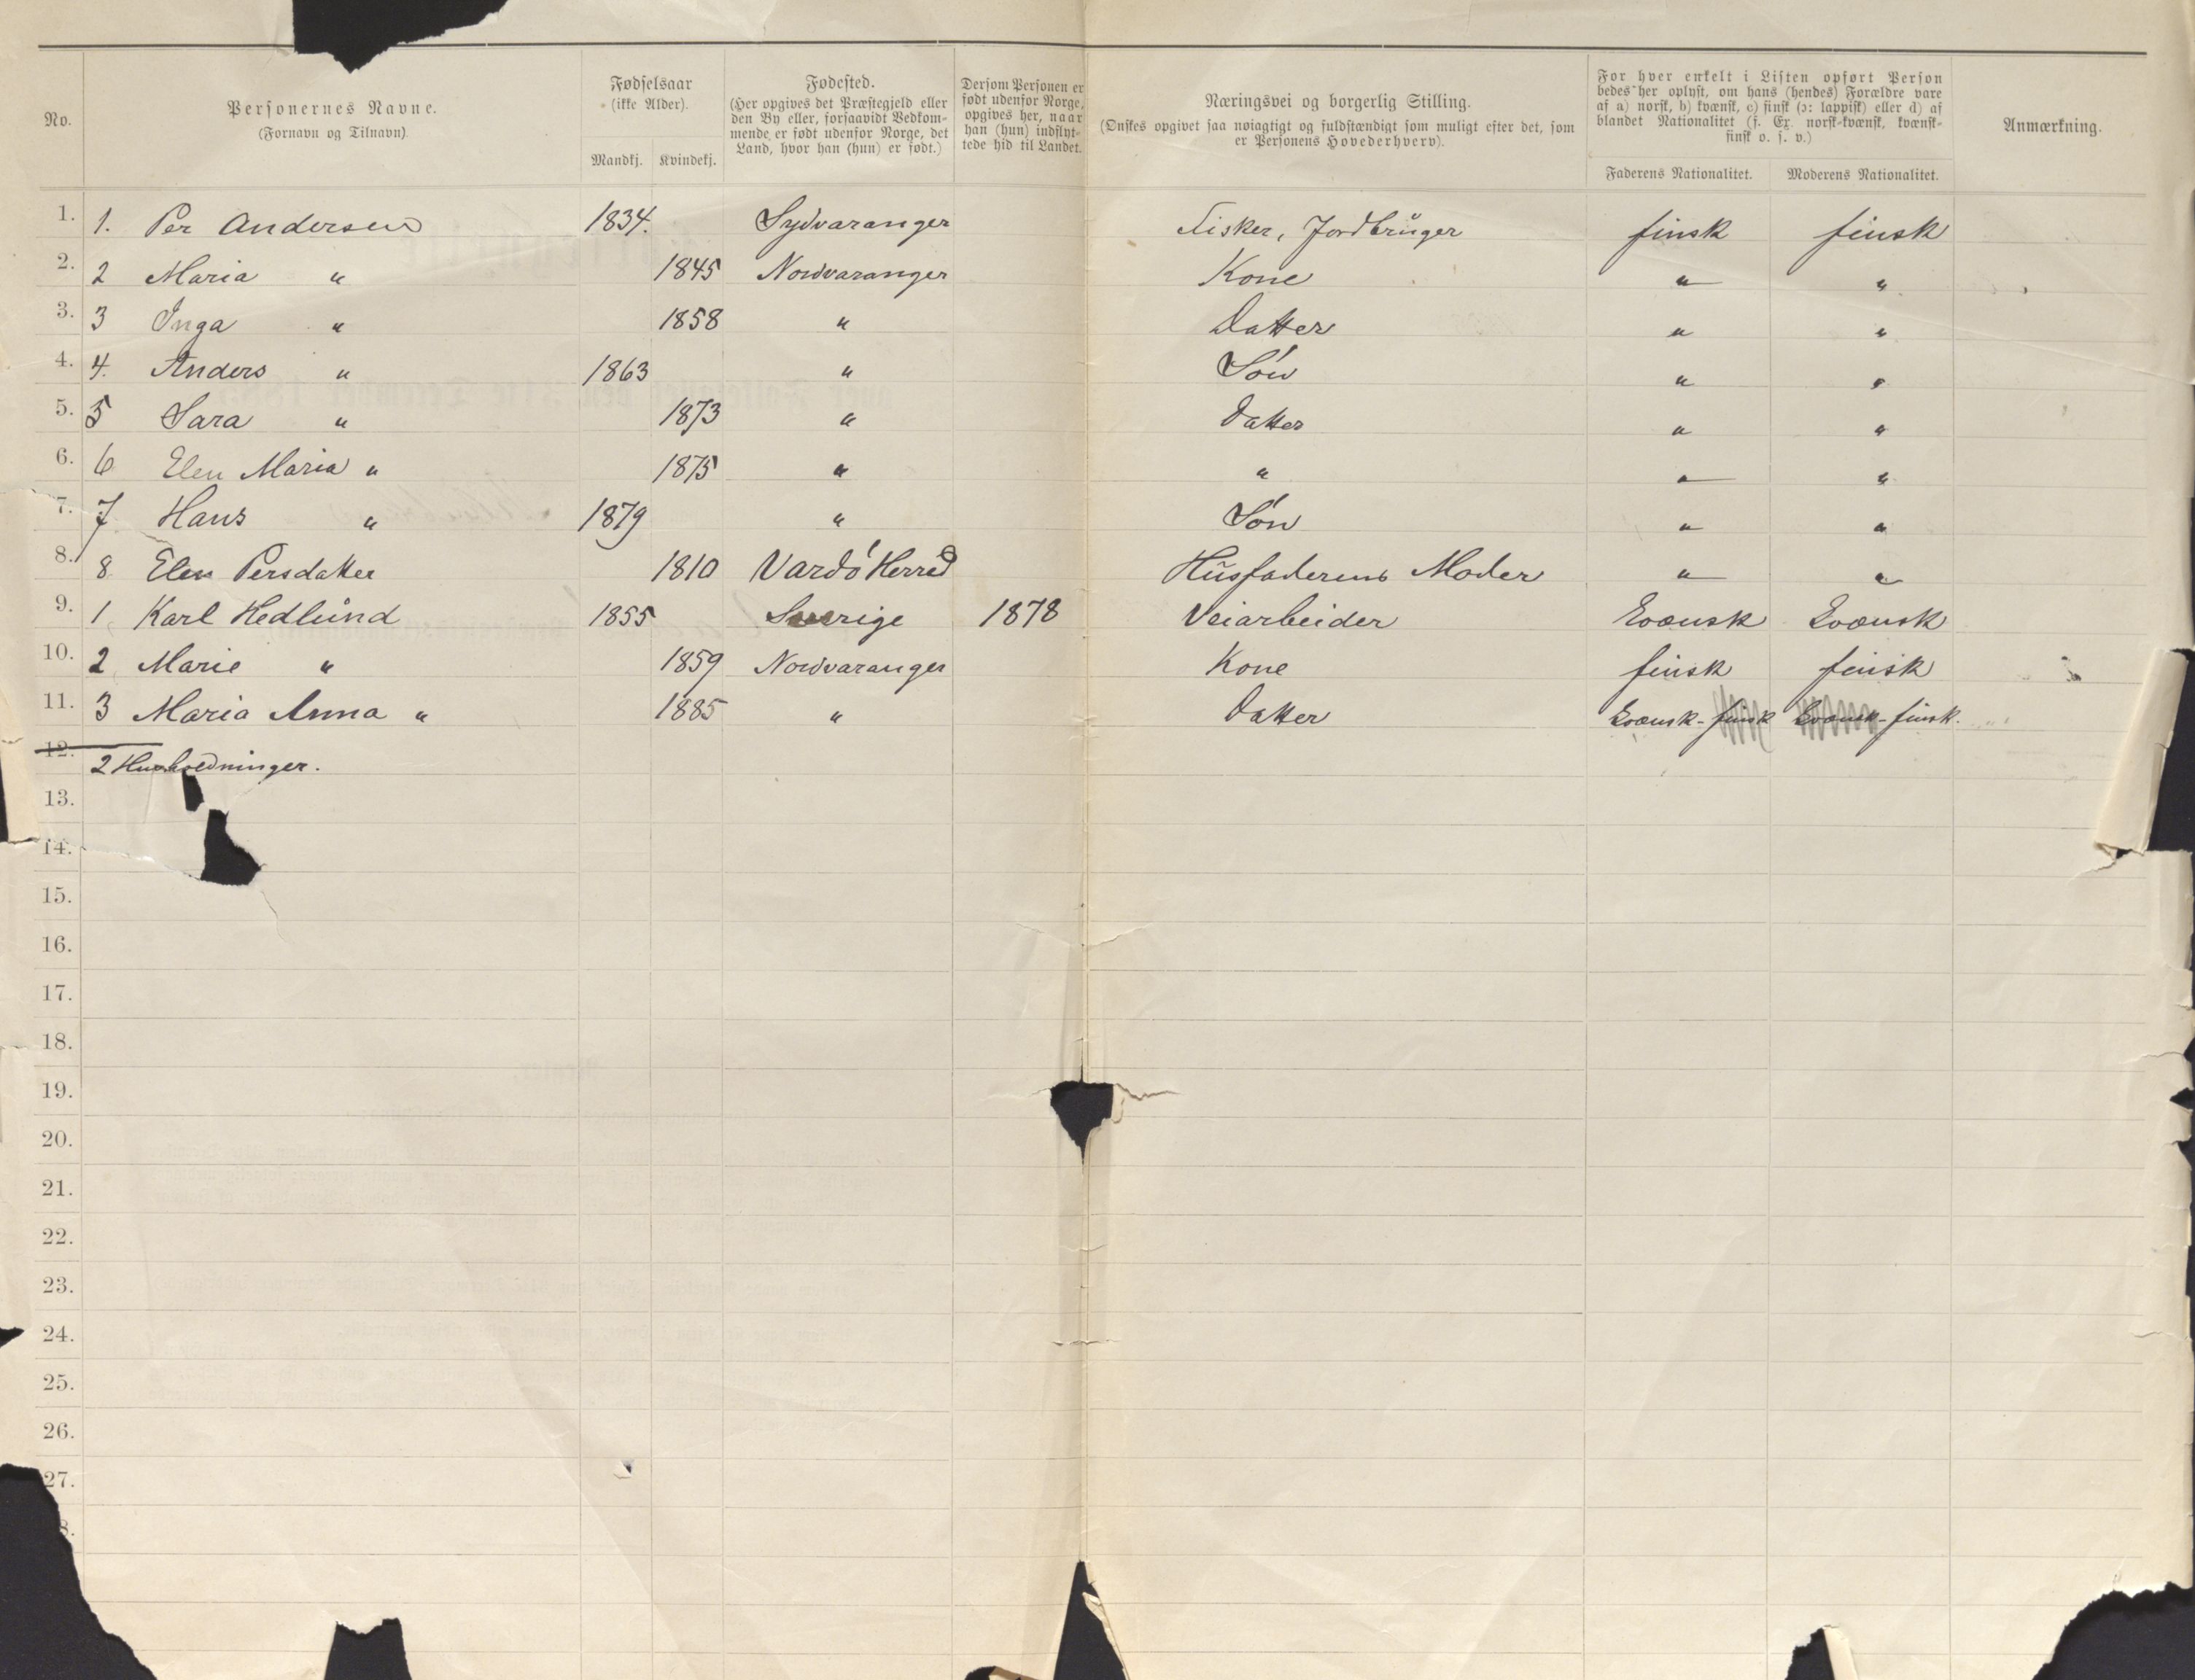 No.
Personernes Navne.
(Fornavn og Tilnavn).
Fødselsaar
(ikke Alder).
Mandkj. Kvindekj.
Fødested.
(Her opgives det Præstegjeld eller
den By eller, forsaavidt Vedkom-
mende er født udenfor Norge, det
Land, hvor han (hun) er født.)
Dersom Personen er
født udenfor Norge,
opgives her, naar
han (hun) indflyt-
tede hid til Landet.
Næringsvei og borgerlig Stilling.
(Ønskes opgivet saa nøiagtigt og fuldstændigt som muligt efter det, som
er Personens Hovederhverv).
For hver enkelt i Listen opført Person
bedes her oplyst, om hans (hendes) Forældre vare
af a) norsk, b) kvænsk, c) finsk (ɔ: lappisk) eller d) af
blandet Nationalitet (f. Ex. norsk-kvænsk, kvænsk-
finsk o. s. v.)
Faderens Nationalitet. Moderens Nationalitet.
Anmærkning.
1. 1. Per Andersen 1834. Sydvaranger Fisker, Jordbrŭger finsk finsk
2. 2 Maria " 1845 Nordvaranger Kone " "
3. 3 Inga " 1858 " Datter " "
4. 4. Anders " 1863 " Søn " "
5. 5 Sara " 1873 " Datter " "
6. 6 Elen Maria " 1875 " " " "
7. 7 Hans " 1879 " Søn " "
8. 8 Elen Persdatter 1810 Vardø Herred Hŭsfaderens Moder " "
9. 1 Karl Hedlŭnd 1855 Sverige 1878 Veiarbeider kvænsk kvænsk
10. 2 Marie " 1859 Nordvaranger Kone finsk finsk
11. 3 Maria Anna " 1885 " Datter kvænsk-finsk kvænsk-finsk.
12. 2 Husholdninger.
13.
14.
15.
16.
17.
18.
19.
20.
21.
22.
23.
24.
25.
26.
27.